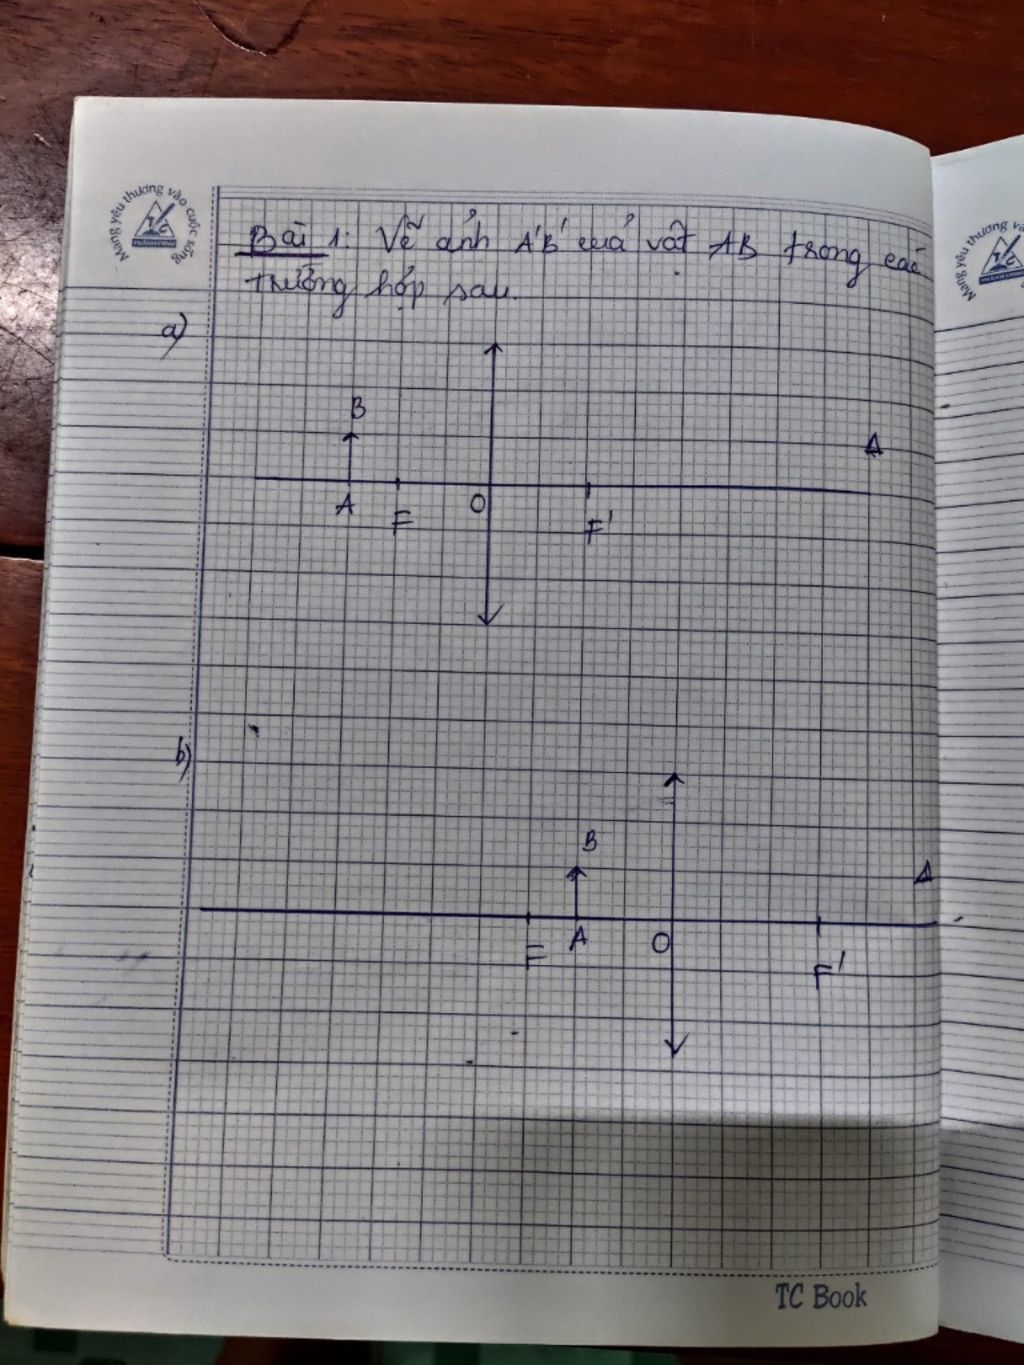 Mang yêu thương vào cuộc sống
Bài 1: Vẽ ảnh A'B' của vật AB trong các
trường hợp sau.
a)
B
Δ
A F O F'
b)
B
Δ
F A O F'
TC Book